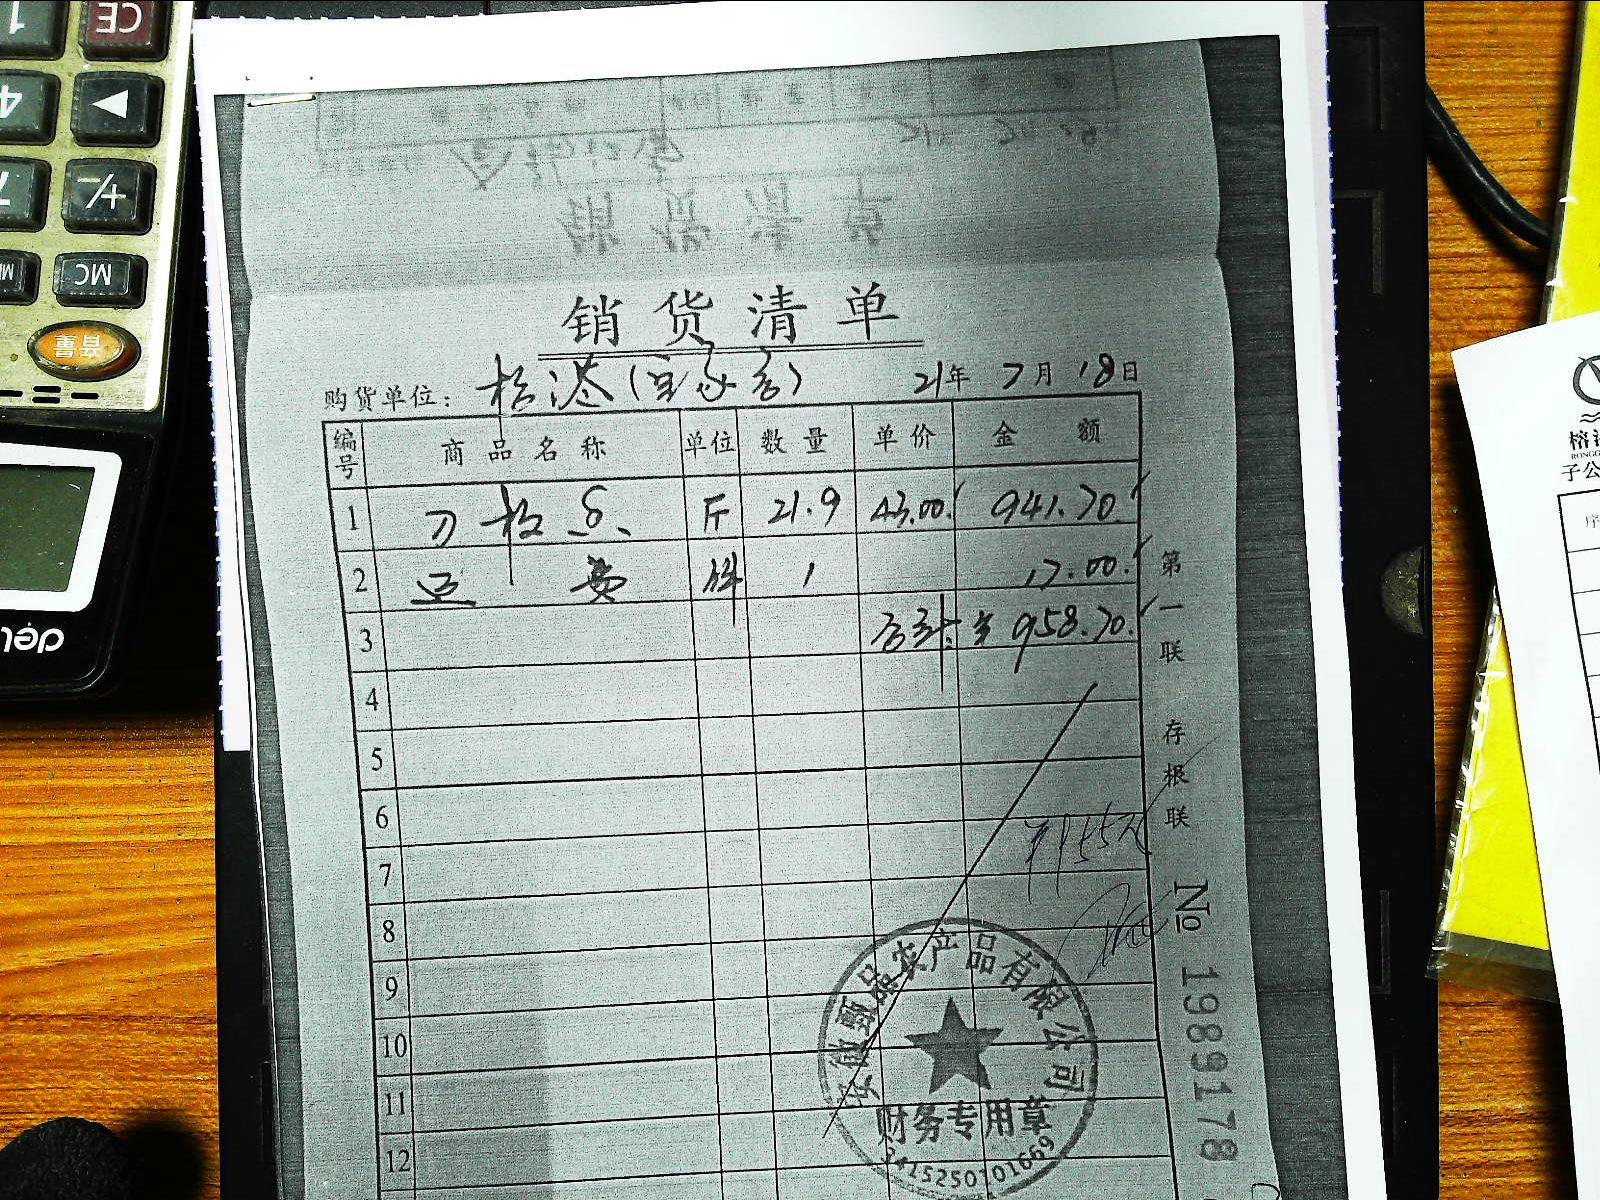 CE
1
4
7
+/-
MC
deli
销货清单
购货单位: 榕港(宴会)
21年 7月 18日
编号 商品名称 单位 数量 单价 金额
1 刀板香 斤 21.9 43.00 941.70
2 运费 件 1 17.00
3 合计: ¥958.70
4
5
6
7
8
9
10
11
12
第一联 存根联
№ 1989178
安徽甄品农产品有限公司
财务专用章
3415250101669
榕港
子公
序